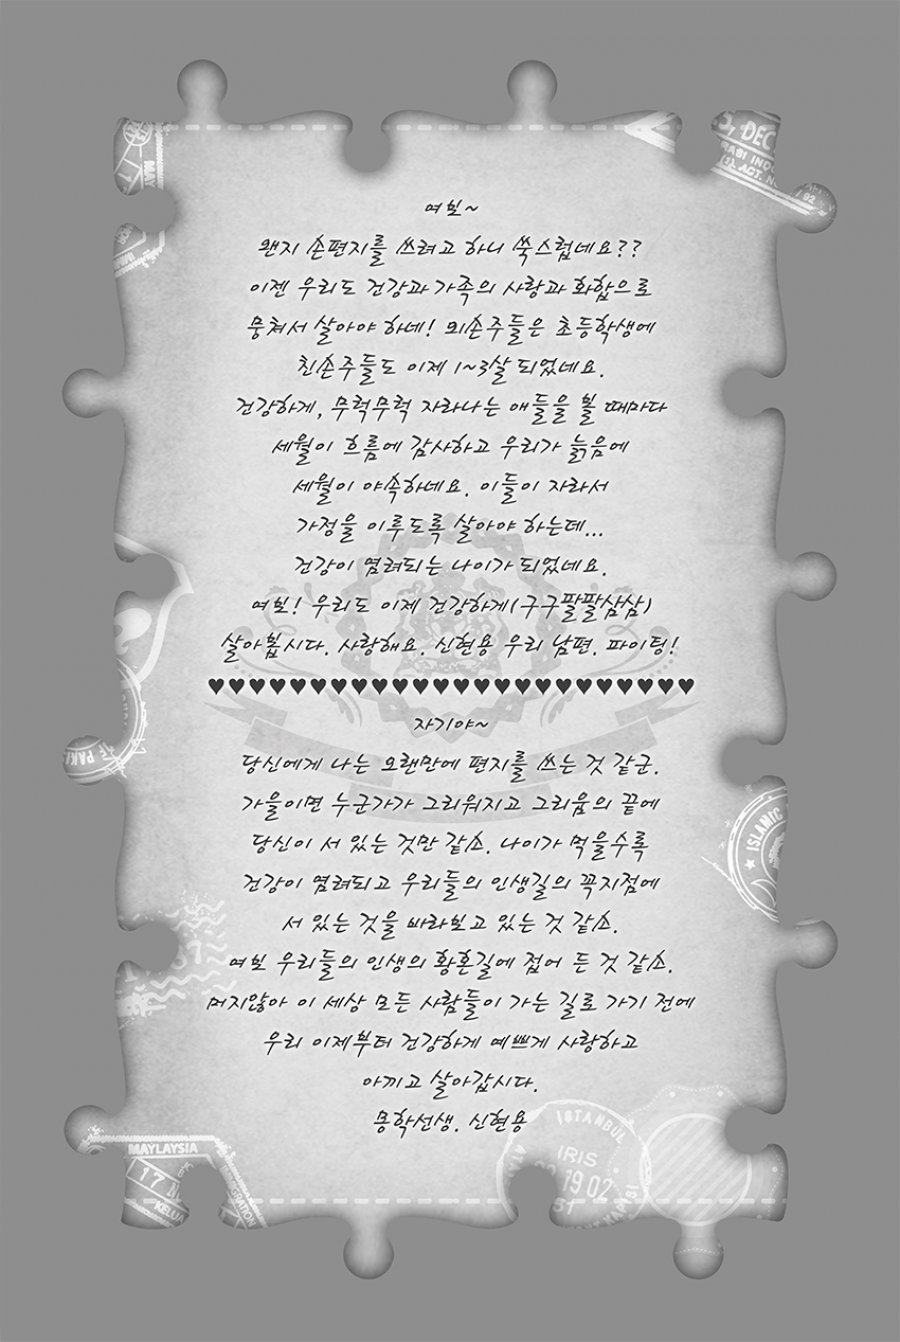 여보~
왠지 손편지를 쓰려고 하니 쑥스럽네요??
이젠 우리도 건강과 가족의 사랑과 화합으로
뭉쳐서 살아야 하네! 외손주들은 초등학생에
친손주들도 이제 1~3살 되었네요.
건강하게, 무럭무럭 자라나는 애들을 볼 때마다
세월이 흐름에 감사하고 우리가 늙음에
세월이 야속하네요. 이들이 자라서
가정을 이루도록 살아야 하는데...
건강이 염려되는 나이가 되었네요.
여보! 우리도 이제 건강하게(구구팔팔삼삼)
살아봅시다. 사랑해요. 신현용 우리 남편. 파이팅!
♥♥♥♥♥♥♥♥♥♥♥♥♥♥♥♥♥♥♥♥♥♥♥♥
자기야~
당신에게 나는 오랜만에 편지를 쓰는 것 같군.
가을이면 누군가가 그리워지고 그리움의 끝에
당신이 서 있는 것만 같소. 나이가 먹을수록
건강이 염려되고 우리들의 인생길의 꼭지점에
서 있는 것을 바라보고 있는 것 같소.
여보 우리들의 인생의 황혼길에 접어 든 것 같소.
머지않아 이 세상 모든 사람들이 가는 길로 가기 전에
우리 이제부터 건강하게 예쁘게 사랑하고
아끼고 살아갑시다.
몽학선생. 신현용
MAY
DEC
ISLAMIC
MAYLAYSIA
17
ISTANBUL
IRIS
19.02